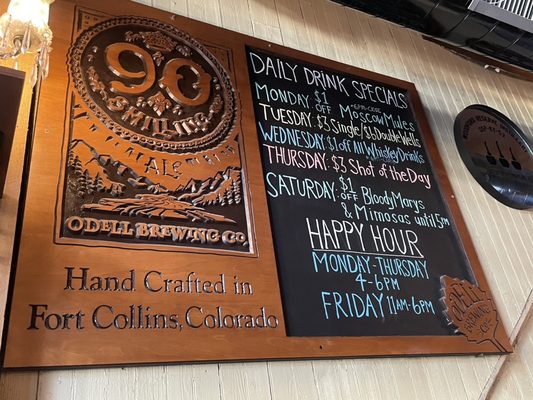 90
SHILLING
ALE
ODELL BREWING CO.
Hand Crafted in
Fort Collins, Colorado
DAILY DRINK SPECIALS
MONDAY: $1 OFF Moscow Mules
TUESDAY: $3 Single/$5 Double Wells
WEDNESDAY: $1 off All Whiskey Drinks
THURSDAY: $3 Shot of the Day
SATURDAY: $1 OFF Bloody Marys
& Mimosas until 5pm
HAPPY HOUR
MONDAY-THURSDAY
4-6PM
FRIDAY 11AM-6PM
ODELL
BREWING
CO.